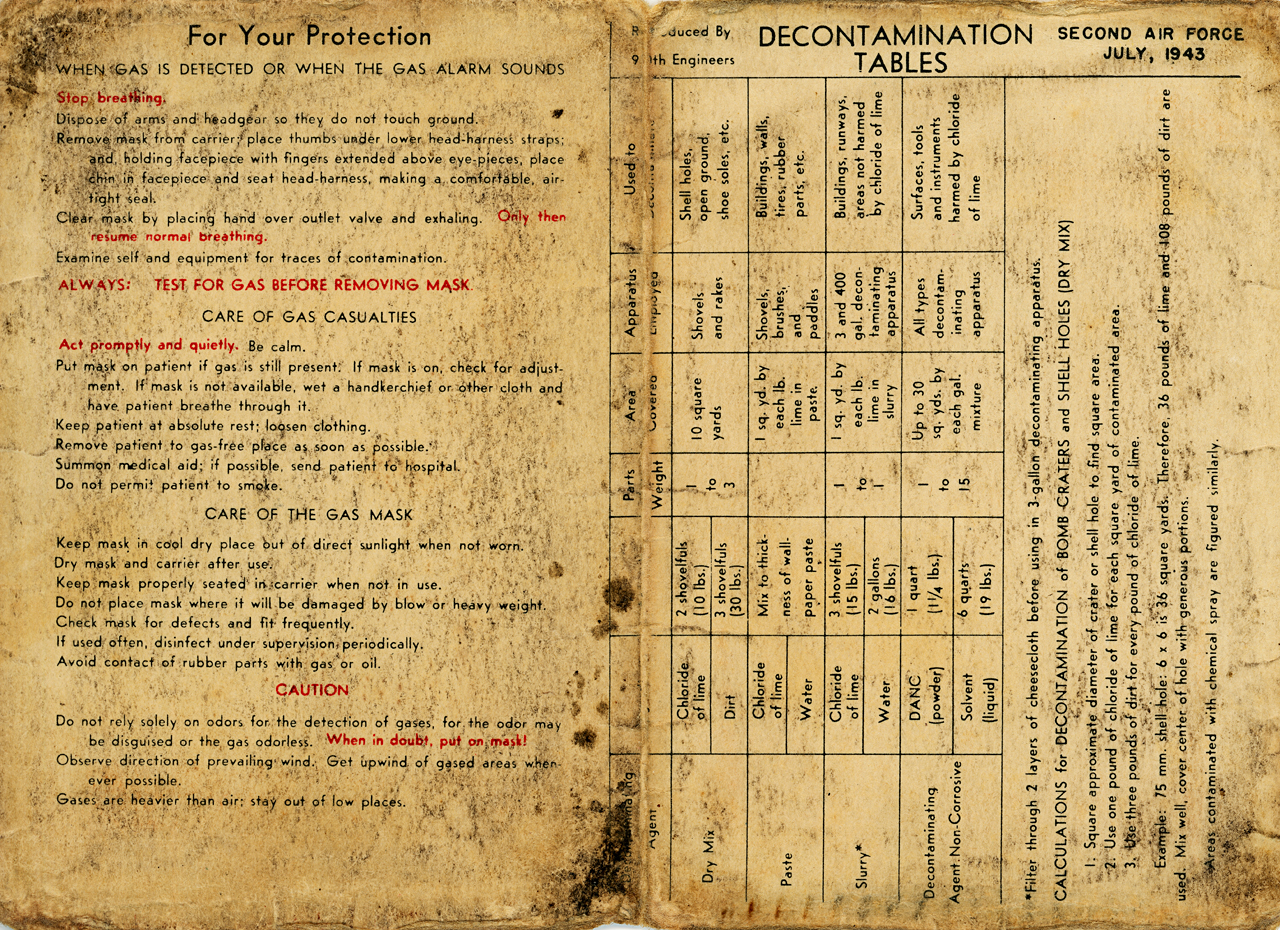 For Your Protection
WHEN GAS IS DETECTED OR WHEN THE GAS ALARM SOUNDS
Stop breathing.
Dispose of arms and headgear so they do not touch ground.
Remove mask from carrier; place thumbs under lower head-harness straps;
and, holding facepiece with fingers extended above eye-pieces, place
chin in facepiece and seat head-harness, making a comfortable, air-
tight seal.
Clear mask by placing hand over outlet valve and exhaling. Only then
resume normal breathing.
Examine self and equipment for traces of contamination.
ALWAYS: TEST FOR GAS BEFORE REMOVING MASK
CARE OF GAS CASUALTIES
Act promptly and quietly. Be calm.
Put mask on patient if gas is still present. If mask is on, check for adjust-
ment. If mask is not available, wet a handkerchief or other cloth and
have patient breathe through it.
Keep patient at absolute rest; loosen clothing.
Remove patient to gas-free place as soon as possible.
Summon medical aid; if possible, send patient to hospital.
Do not permit patient to smoke.
CARE OF THE GAS MASK
Keep mask in cool dry place out of direct sunlight when not worn.
Dry mask and carrier after use.
Keep mask properly seated in carrier when not in use.
Do not place mask where it will be damaged by blow or heavy weight.
Check mask for defects and fit frequently.
If used often, disinfect under supervision periodically.
Avoid contact of rubber parts with gas or oil.
CAUTION
Do not rely solely on odors for the detection of gases, for the odor may
be disguised or the gas odorless. When in doubt, put on mask!
Observe direction of prevailing wind. Get upwind of gased areas when-
ever possible.
Gases are heavier than air; stay out of low places.
By
Engineers
DECONTAMINATION
TABLES
SECOND AIR FORCE
JULY, 1943
Agent
Parts
Weight
Area
Covered
Apparatus
Employed
Used to
Dry Mix
Chloride
of lime
2 shovelfuls
(10 lbs.)
Dirt
3 shovelfuls
(30 lbs.)
1
to
3
10 square
yards
Shovels
and rakes
Shell holes,
open ground,
shoe soles, etc.
Paste
Chloride
of lime
Water
Mix to thick-
ness of wall-
paper paste
1 sq. yd. by
each lb.
lime in
paste.
Shovels,
brushes,
and
paddles
Buildings, walls,
tires, rubber
parts, etc.
Slurry*
Chloride
of lime
3 shovelfuls
(15 lbs.)
Water
2 gallons
(16 lbs.)
1
to
1
1 sq. yd. by
each lb.
lime in
slurry
3 and 400
gal. decon-
taminating
apparatus
Buildings, runways,
areas not harmed
by chloride of lime
Decontaminating
Agent Non-Corrosive
DANC
(powder)
1 quart
(1¼ lbs.)
Solvent
(liquid)
6 quarts
(19 lbs.)
1
to
15
Up to 30
sq. yds. by
each gal.
mixture
All types
decontam-
inating
apparatus
Surfaces, tools
and instruments
harmed by chloride
of lime
*Filter through 2 layers of cheesecloth before using in 3-gallon decontaminating apparatus.
CALCULATIONS for DECONTAMINATION of BOMB CRATERS and SHELL HOLES (DRY MIX)
1. Square approximate diameter of crater or shell hole to find square area.
2. Use one pound of chloride of lime for each square yard of contaminated area.
3. Use three pounds of dirt for every pound of chloride of lime.
Example: 75 mm. shell hole: 6 x 6 is 36 square yards. Therefore, 36 pounds of lime and 108 pounds of dirt are
used. Mix well, cover center of hole with generous portions.
Areas contaminated with chemical spray are figured similarly.